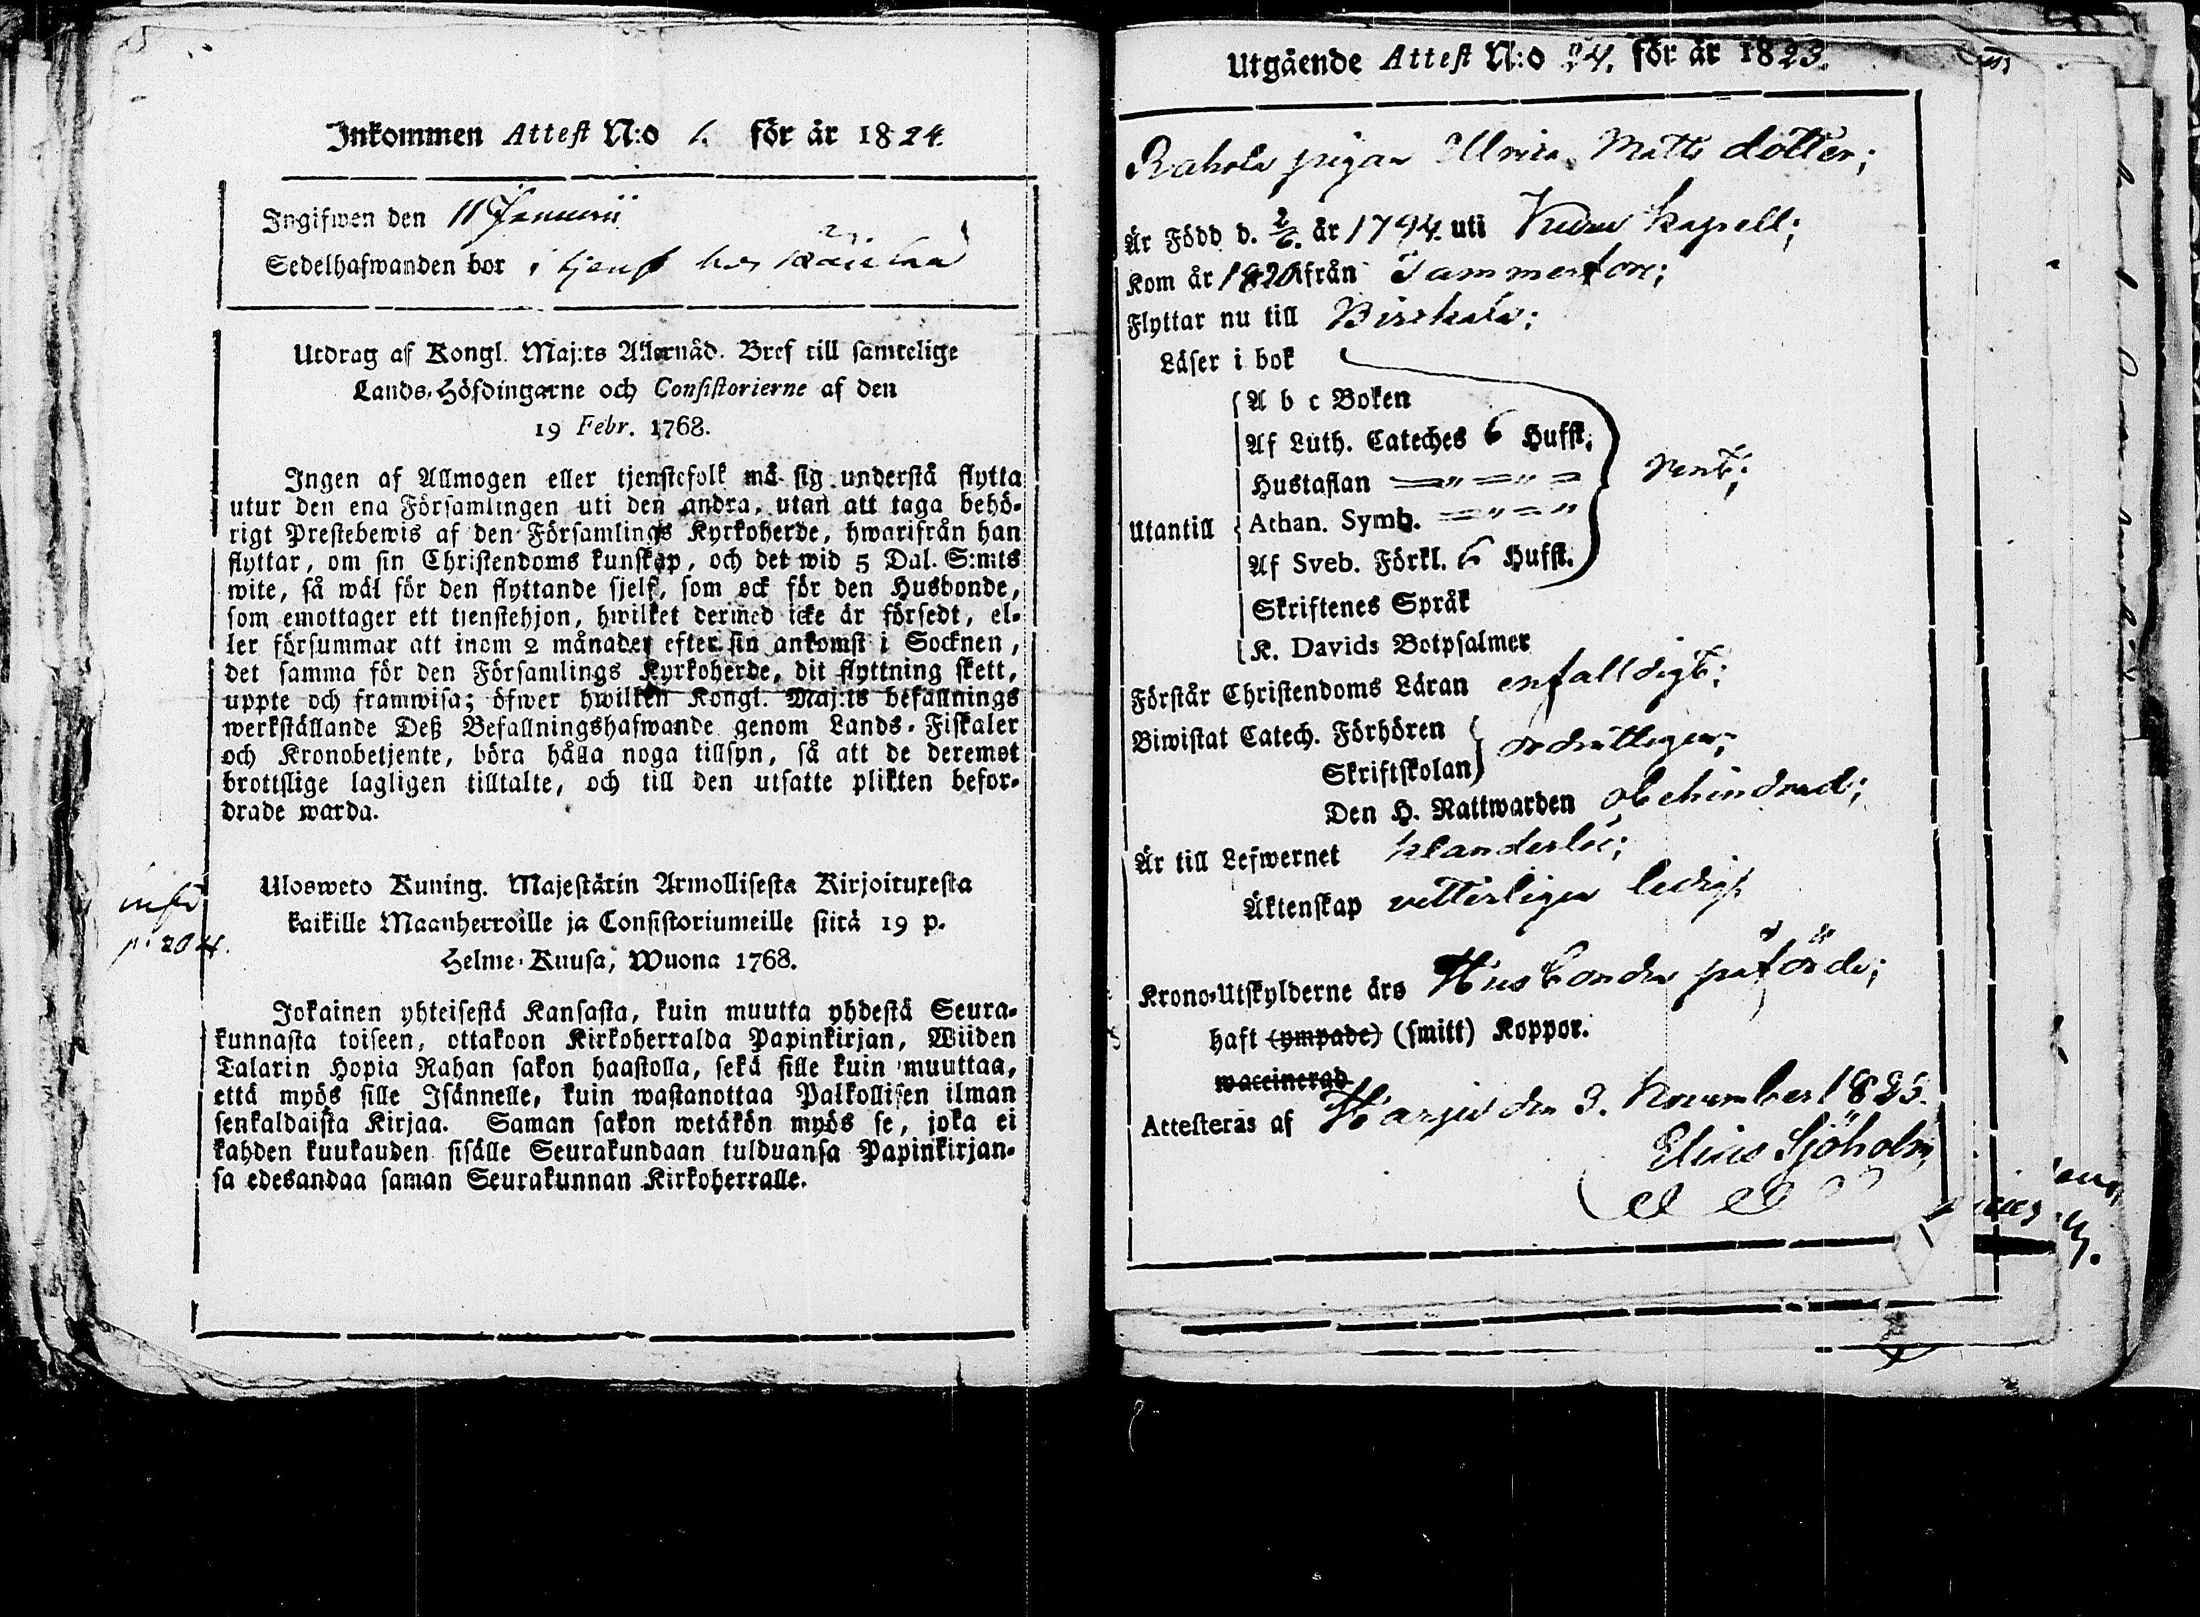 Inkommen Attest N:o 1. för år 1824.
Ingifwen den 11 Januarii
Sedelhafwanden bor i tjenst hos
Utdrag af Kongl. Maj:ts Allernåd. Bref till samtelige
Lands-Höfdingarne och Consistorierne af den
19 Febr. 1768.
Ingen af Allmogen eller tjenstefolk må sig understå flytta
utur den ena Församlingen uti den andra, utan att taga behö-
rigt Prestebewis af den Församlings Kyrkoherde, hwarifrån han
flyttar, om sin Christendoms kunskap, och det wid 5 Dal. S:mts
wite, så wäl för den flyttande sjelf, som ock för den Husbonde,
som emottager ett tjenstehjon, hwilket dermed icke är försedt, el-
ler försummar att inom 2 månader efter sin ankomst i Socknen,
det samma för den Församlings Kyrkoherde, dit flyttning skett,
uppte och framwisa; öfwer hwilken Kongl. Maj:ts befallnings
werkställande Deß Befallningshafwande genom Lands-Fiskaler
och Kronobetjente, böra hålla noga tillsyn, så att de deremot
brottslige lagligen tilltalte, och till den utsatte plikten befor-
drade warda.
Uloswero Kuning. Majestätin Armollisesta Kirjoituxesta
kaikille Maanherroille ja Consistoriumeille siitä 19 p.
Helme-Kuusa, Wuona 1768.
inf:
p. 204.
Jokainen yhteisestä Kansasta, kuin muutta yhdestä Seura-
kunnasta toiseen, ottakoon Kirkoherralda Papinkirjan, Wiiden
Talarin Hopia Rahan sakon haastolla, sekä sille kuin muuttaa,
että myös sille Isännelle, kuin wastanottaa Palkollisen ilman
senkaldaista Kirjaa. Saman sakon wetäkön myös se, joka ei
kahden kuukauden sisälle Seurakundaan tulduansa Papinkirjan-
sa edesandaa saman Seurakunnan Kirkoherralle.
Utgående Attest N:o 24. för år 1823.
Rahola pigan Ulrica Matts dotter;
Är Född d. 2/6. år 1794. uti kapell;
Kom år 1820 ifrån Tammerfors;
Flyttar nu till Birkala;
Läser i bok
A b c Boken
Af Luth. Cateches 6 Hufst.
Hustaflan = " = " = rent;
Utantill Athan. Symb. = " = "
Af Sveb. Förkl. 6 Hufst.
Skriftenes Språk
K. Davids Botpsalmer
Förstår Christendoms Läran enfalldigt;
Biwistat Catech. Förhören ordentligen;
Skriftskolan
Den H. Nattwarden obehindrad;
Är till Lefwernet klanderlös;
Äktenskap vetterligen ledig;
Krono-Utskylderne äro Husbonden påförde;
haft (ympade) (smitt) Koppor.
waccinerad
Attesteras af Harju den 3. November 1823.
Elias Sjöholm